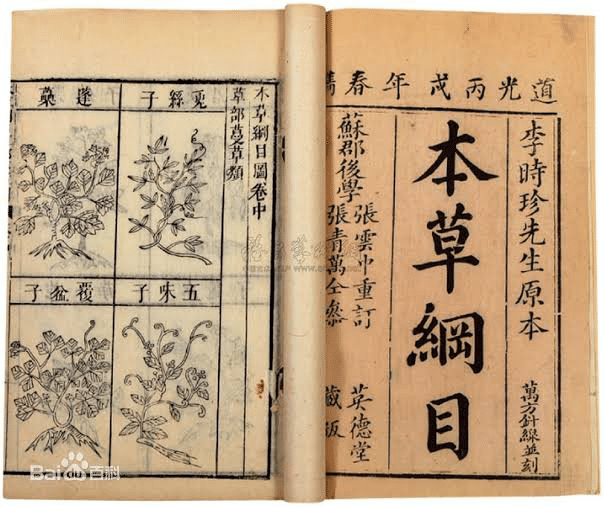 道光丙戌年春鐫
李時珍先生原本
萬方針線並刻
本草綱目
蘇郡後學
張雲中重訂
張青萬仝參
英德堂
藏板
本草綱目圖卷中
草部蔓草類
兎絲子
五味子
蓬蘽
覆盆子
Baidu百科